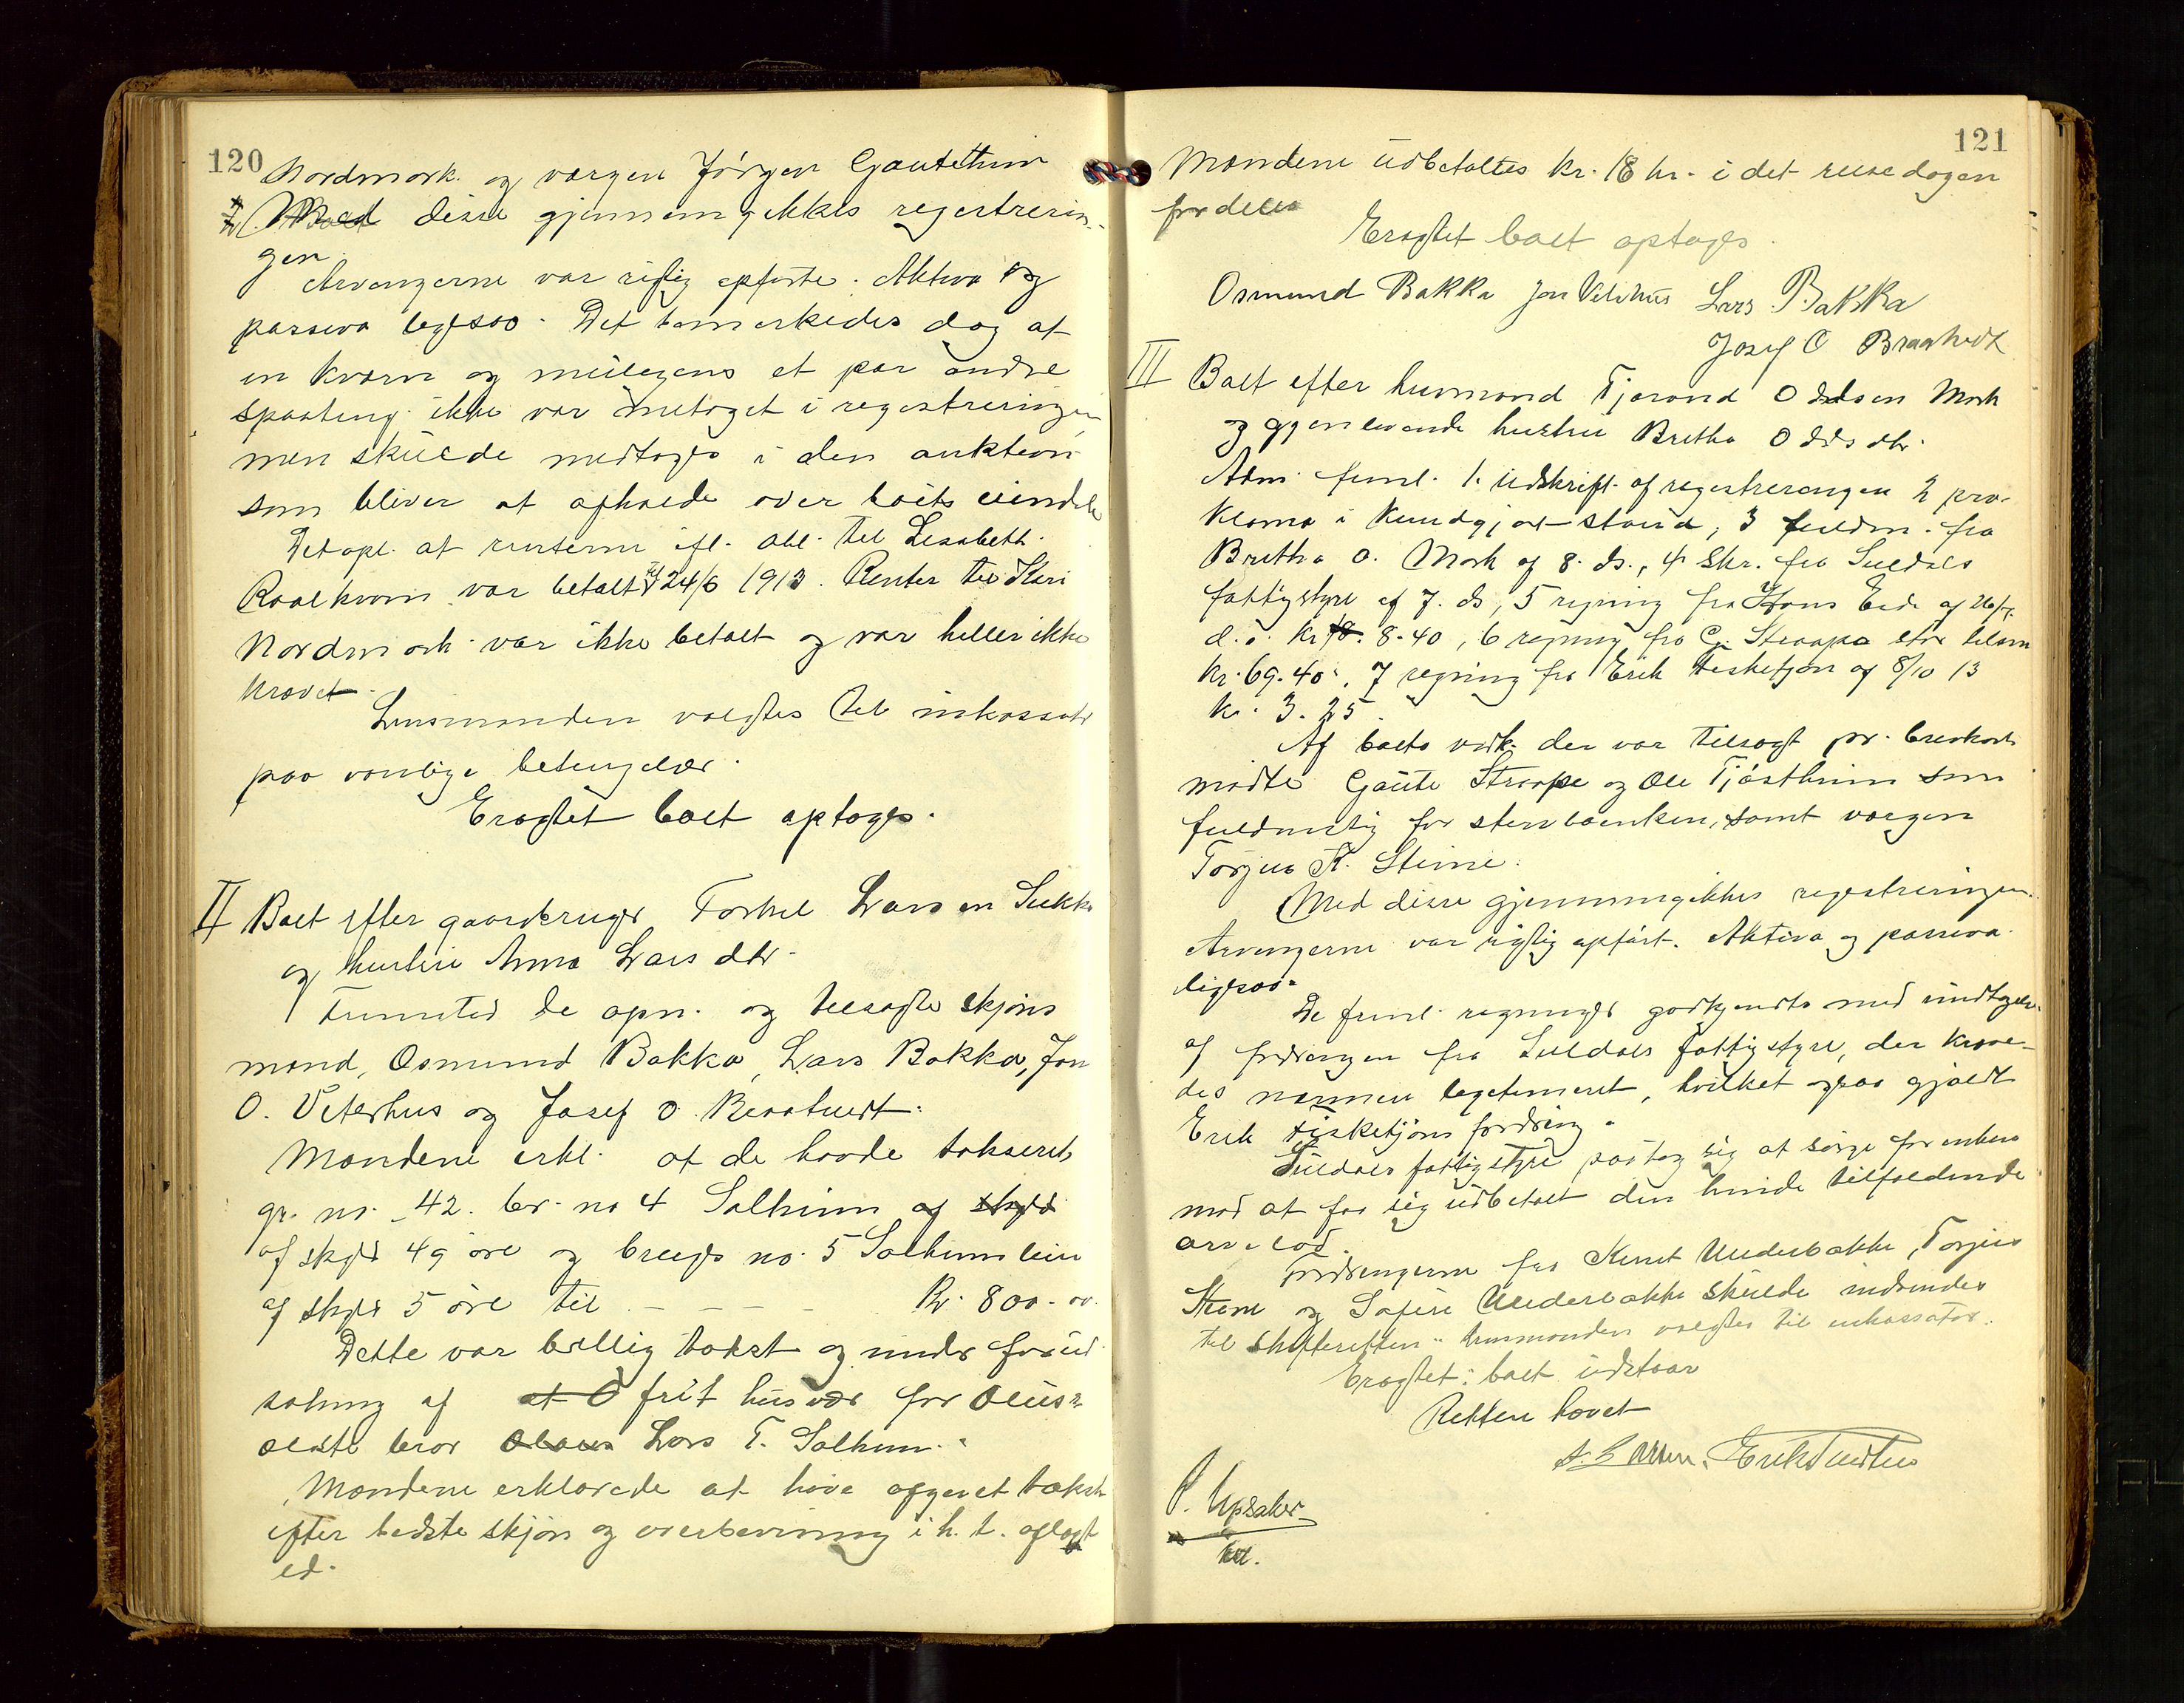 120
Nordmork og vergen Jørgen Gautetun
Med disse gjennemgikkes registrerin-
gen.
Arvingerne var rigtig opførte. Aktiva og
passiva ligesaa. Det bemerkedes dog at
en kvern og muligens et par andre
smaating ikke var medtaget i registreringen
men skulde medtages i den auktion
som bliver at afholde over boets eiendele
Det opl. at renterne ifl. obl. til Lisabeth
Roalkvam var betalt til 24/6 1913. Renter til Kari
Nordmork var ikke betalt og var heller ikke
krævet.
Lensmanden valgtes til inkassator
paa vanlige betingelser.
Eragtet boet optages.
II Boet efter gaardbruger Torkel Larsen
og hustru Anna Larsdtr.
Fremsted de opn. og tilsagte skjøns
mænd, Osmund Bakka, Lars Bakka, Jon
O. Veterhus og Josef O. Braatveit.
Mændene erkl. at de havde takseret
gr. no. 42. br. no 4 Solheim af skyld
af skyld 49 øre og brugs no. 5 Solheimslien
af skyld 5 øre til - - - - Kr. 800.00.
Dette var billig takst og under forud
sætning af at O frit husvær for
ældste bror Olaus Lars T. Solheim.
Mændene erklærede at have afgivet takst
efter bedste skjøn og overbevisning i h. t. aflagt
ed.
121
Mændene udbetaltes kr. 18 hr. i det reisedagen
fordeles
Eragtet boet optages.
Osmund Bakka Jon Vetrhus Lars Bakka
Josef O Braatvedt
III Boet efter husmand Tjerand Oddsen Mork
og gjenlevende hustru Bretha Oddsdtr.
Adm. freml. 1. udskrift af registreringen 2 pro-
klama i kundgjort stand, 3 fuldm. fra
Bretha O. Mork af 8. ds., 4 Skr. fra Suldals
fattigstyre af 7. ds, 5 regning fra Hans Eide af 26/9.
d. å. kr. 8.40, 6 regning fra G. Straapa stor tilsm
kr. 69.40. 7 regning fra Erik Fisketjøn af 8/10 13
kr. 3.25.
Af boets vedk. der var tilsagt pr. brevkort
mødte Gaute Straapa og Ole Tjøstheim som
fuldmektig for stervboenken, samt vergen
Torjus K. Steine.
Med disse gjennemgikkes registreringen.
Arvingerne var rigtig opført. Aktiva og passiva
ligesaa.
De freml. regninger godkjendts med undtagelse
af fordringen fra Suldals fattigstyre, der kræve-
des nærmere legetimeret, hvilket ogsaa gjaldt
Erik Fisketjøns fordring.
Suldals fattigstyre paatog sig at sørge for enken
mod at faa sig udbetalt den hende tilfaldende
arvelod.
Fordringerne fra Knut Underbakke, Torjus
Steine og Sofus Underbakke skulde indsendes
til skifteretten. Lensmanden valgtes til inkassator.
Eragtet: boet udstaar
Retten hævet